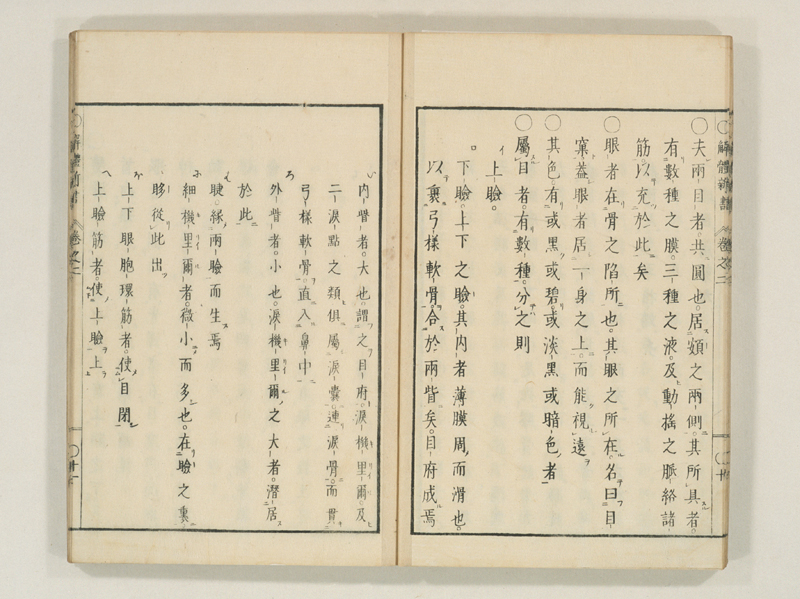 〇夫兩目者共圓也居頰之兩側其所具者
有數種之膜三種之液及動搖之脈絡諸
筋以充於此矣
〇眼者在骨之陷所也其眼之所在名曰目
窠蓋眼者居一身之上而能視遠
〇其色有或黑或碧或淡黑或暗色者
〇屬目者有數種分之則
イ上瞼
ロ下瞼上下之瞼其内者薄膜周而滑也
以裹弓樣軟骨合於兩眥矣目府成焉
内眥者大也謂之目府淚機里爾及
二淚點之類俱屬淚囊連淚骨而貫
弓樣軟骨直入鼻中
ろ外眥者小也淚機里爾之大者潛居
於此
は睫緣兩瞼而生焉
に細機里爾者微小而多也在瞼之裏
眵從此出
ほ上下眼胞環筋者使目閉
へ上瞼筋者使上瞼上
解體新書 卷之二 〇十
解體新書 卷之二 〇十一